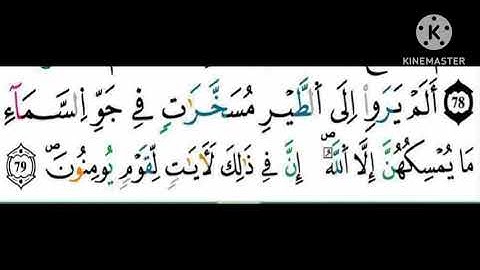 KINEMASTER
78 أَلَمْ يَرَوْاْ إِلَى اَ۬لطَّيْرِ مُسَخَّرَٰتٖ فِي جَوِّ اِ۬لسَّمَآءِ
مَا يُمْسِكُهُنَّ إِلَّا اَ۬للَّهُۖ إِنَّ فِي ذَٰلِكَ لَأٓيَٰتٖ لِّقَوْمٖ يُومِنُونَۖ 79